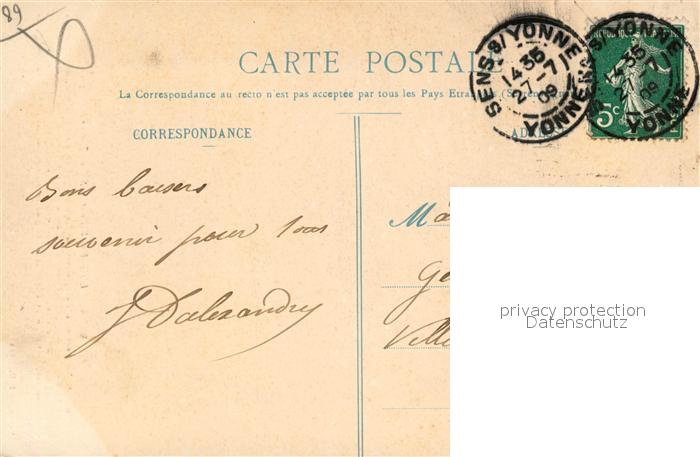 89
CARTE POSTALE
La Correspondance au recto n'est pas acceptée par tous les Pays Etrangers. (Se
CORRESPONDANCE
ADR
SENS S/ YONNE
14 35
27 - 7
09
YONNE
SENS S/ YONNE
14 35
27 - 7
09
YONNE
5c
Bons baisers
souvenir pour tous
J Dalexandry
Ma
Ge
Ville
privacy protection
Datenschutz